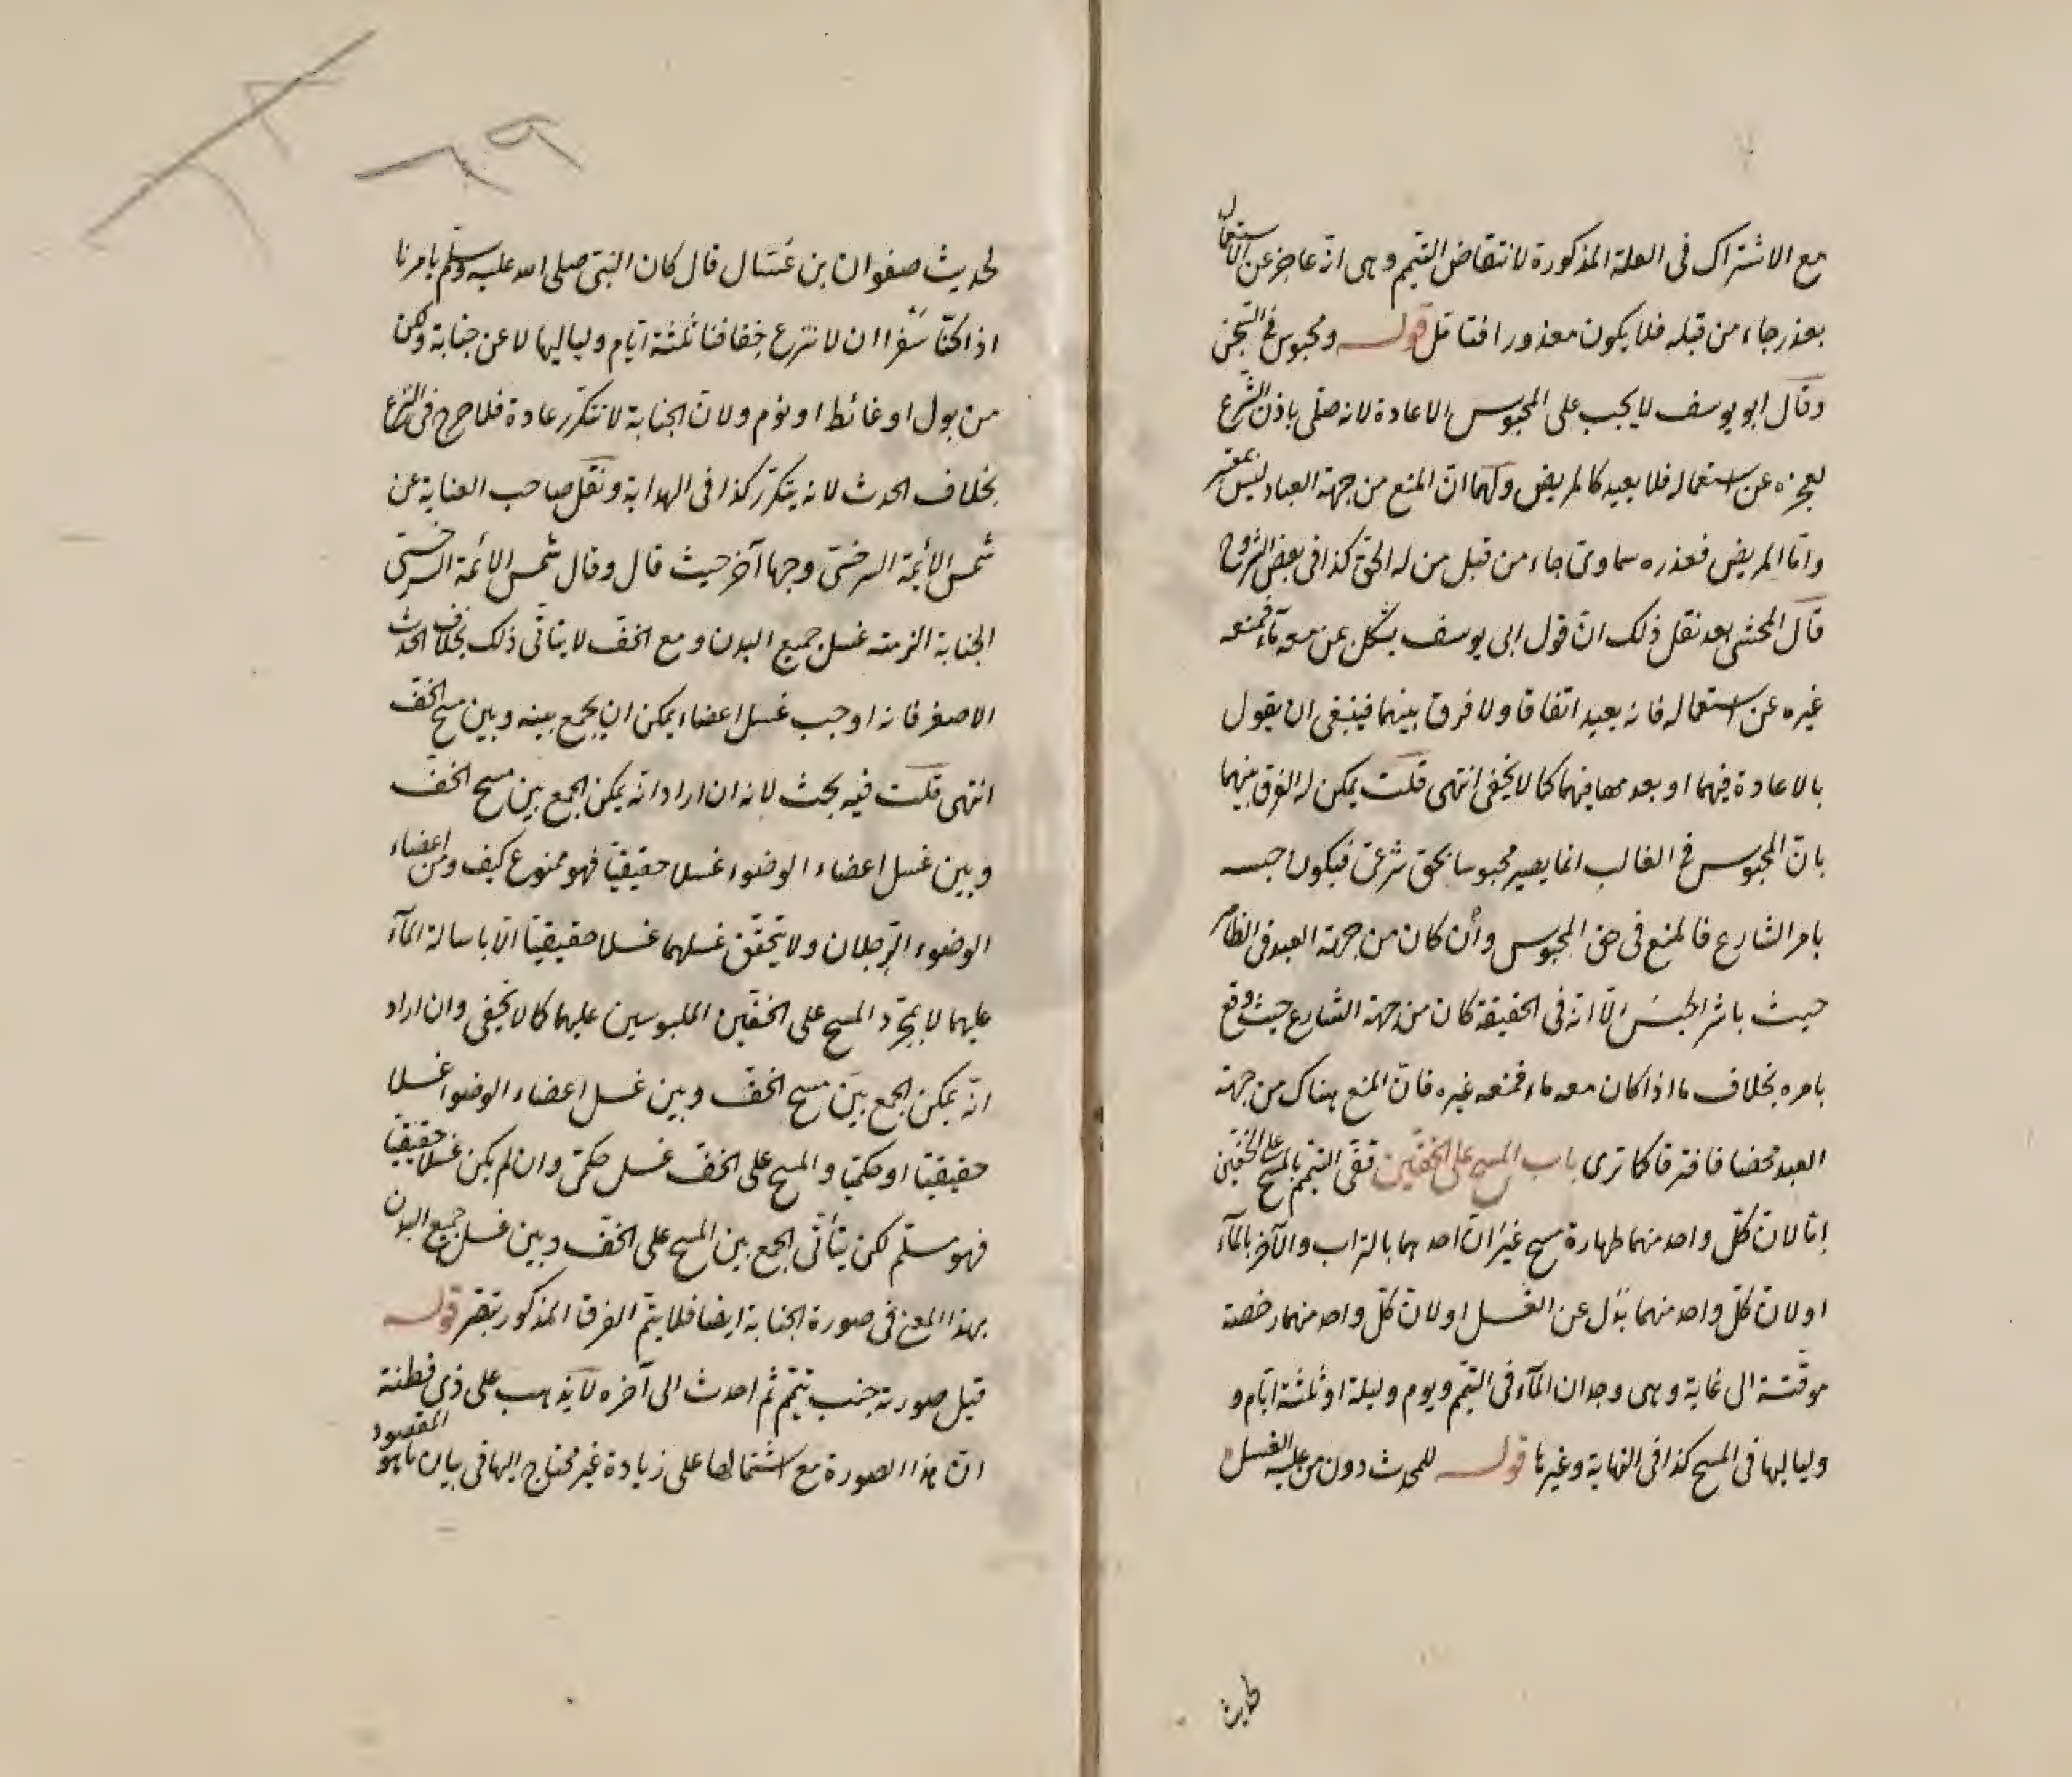 مع الاشتراك فى العلة المذكورة لانتقاض التيمم وهى انه عاجز عن الاستعمال
بعذر جاء من قبله فلا يكون معذورا فتامل قوله ومحبوس فى السجن
وقال ابو يوسف لا يجب على المحبوس الاعادة لانه صلى باذن الشرع
لعجزه عن استعماله فلا يعيد كالمريض ولهما ان المنع من جهة العباد ليس بمعتبر
واما المريض فعذره سماوى جاء من قبل من له الحق كذا فى بعض الشروح
قال المحشى بعد نقل ذلك ان قول ابى يوسف يشكل عن معه ماء فمنعه
غيره عن استعماله فانه يعيد اتفاقا ولا فرق بينهما فينبغى ان يقول
بالاعادة فيهما او بعدمها فيهما كما لا يخفى انتهى قلت يمكن له الفرق بينهما
بان المحبوس فى الغالب انما يصير محبوسا بحق شرعى فيكون حبسه
بامر الشارع فالمنع فى حق المحبوس وأن كان من جهة العبد فى الظاهر
حيث باشر الحبس الا انه فى الحقيقة كان من جهة الشارع حيث وقع
بامره بخلاف ما اذا كان معه ماء فمنعه غيره فان المنع هناك من جهة
العبد محضا فافترقا كما ترى باب المسح على الخفين قفى التيمم بالمسح على الخفين
اما لان كل واحد منهما طهارة مسح غير ان احدهما بالتراب والآخر بالمآء
او لان كل واحد منهما بدل عن الغسل او لان كل واحد منهما رخصة
موقتة الى غاية وهى وجدان المآء فى التيمم ويوم وليلة او ثلثة ايام و
ولياليها فى المسح كذا فى النهاية وغيرها قوله للمحدث دون من عليه الغسل
لحديث
لحديث صفوان بن عسال قال كان النبى صلى الله عليه وسلم يامرنا
اذا كنا سفرا ان لا ننزع خفافنا ثلثة ايام ولياليها لا عن جنابة ولكن
من بول او غائط او نوم ولان الجنابة لا تتكرر عادة فلا حرج فى النزع
بخلاف الحدث لانه يتكرر كذا فى الهداية ونقل صاحب العناية عن
شمس الائمة السرخسى وجها آخر حيث قال وقال شمس الائمة السرخسى
الجنابة الزمته غسل جميع البدن ومع الخف لا يتاتى ذلك بخلاف الحدث
الاصغر فانه اوجب غسل اعضاء يمكن ان يجمع بينه وبين مسح الخف
انتهى قلت فيه بحث لانه ان اراد انه يمكن الجمع بين مسح الخف
وبين غسل اعضاء الوضوء غسلا حقيقيا فهو ممنوع كيف ومن اعضاء
الوضوء الرجلان ولا يتحقق غسلهما غسلا حقيقيا الا باسالة المآء
عليهما لا بمجرد المسح على الخفين الملبوسين عليهما كما لا يخفى وان اراد
انه يمكن الجمع بين مسح الخف وبين غسل اعضاء الوضوء غسلا
حقيقيا او حكميا والمسح على الخف غسل حكمى وان لم يكن غسلا حقيقيا
فهو مسلم لكن يتأتى الجمع بين المسح على الخف وبين غسل جميع البدن
بهذا المعنى فى صورة الجنابة ايضا فلا يتم الفرق المذكور تبصر قوله
قيل صورته جنب تيمم ثم احدث الى آخره لا يذهب على ذى فطنة
ان هذا الصورة مع اشتمالها على زيادة غير محتاج اليها فى بيان ما هو المقصود